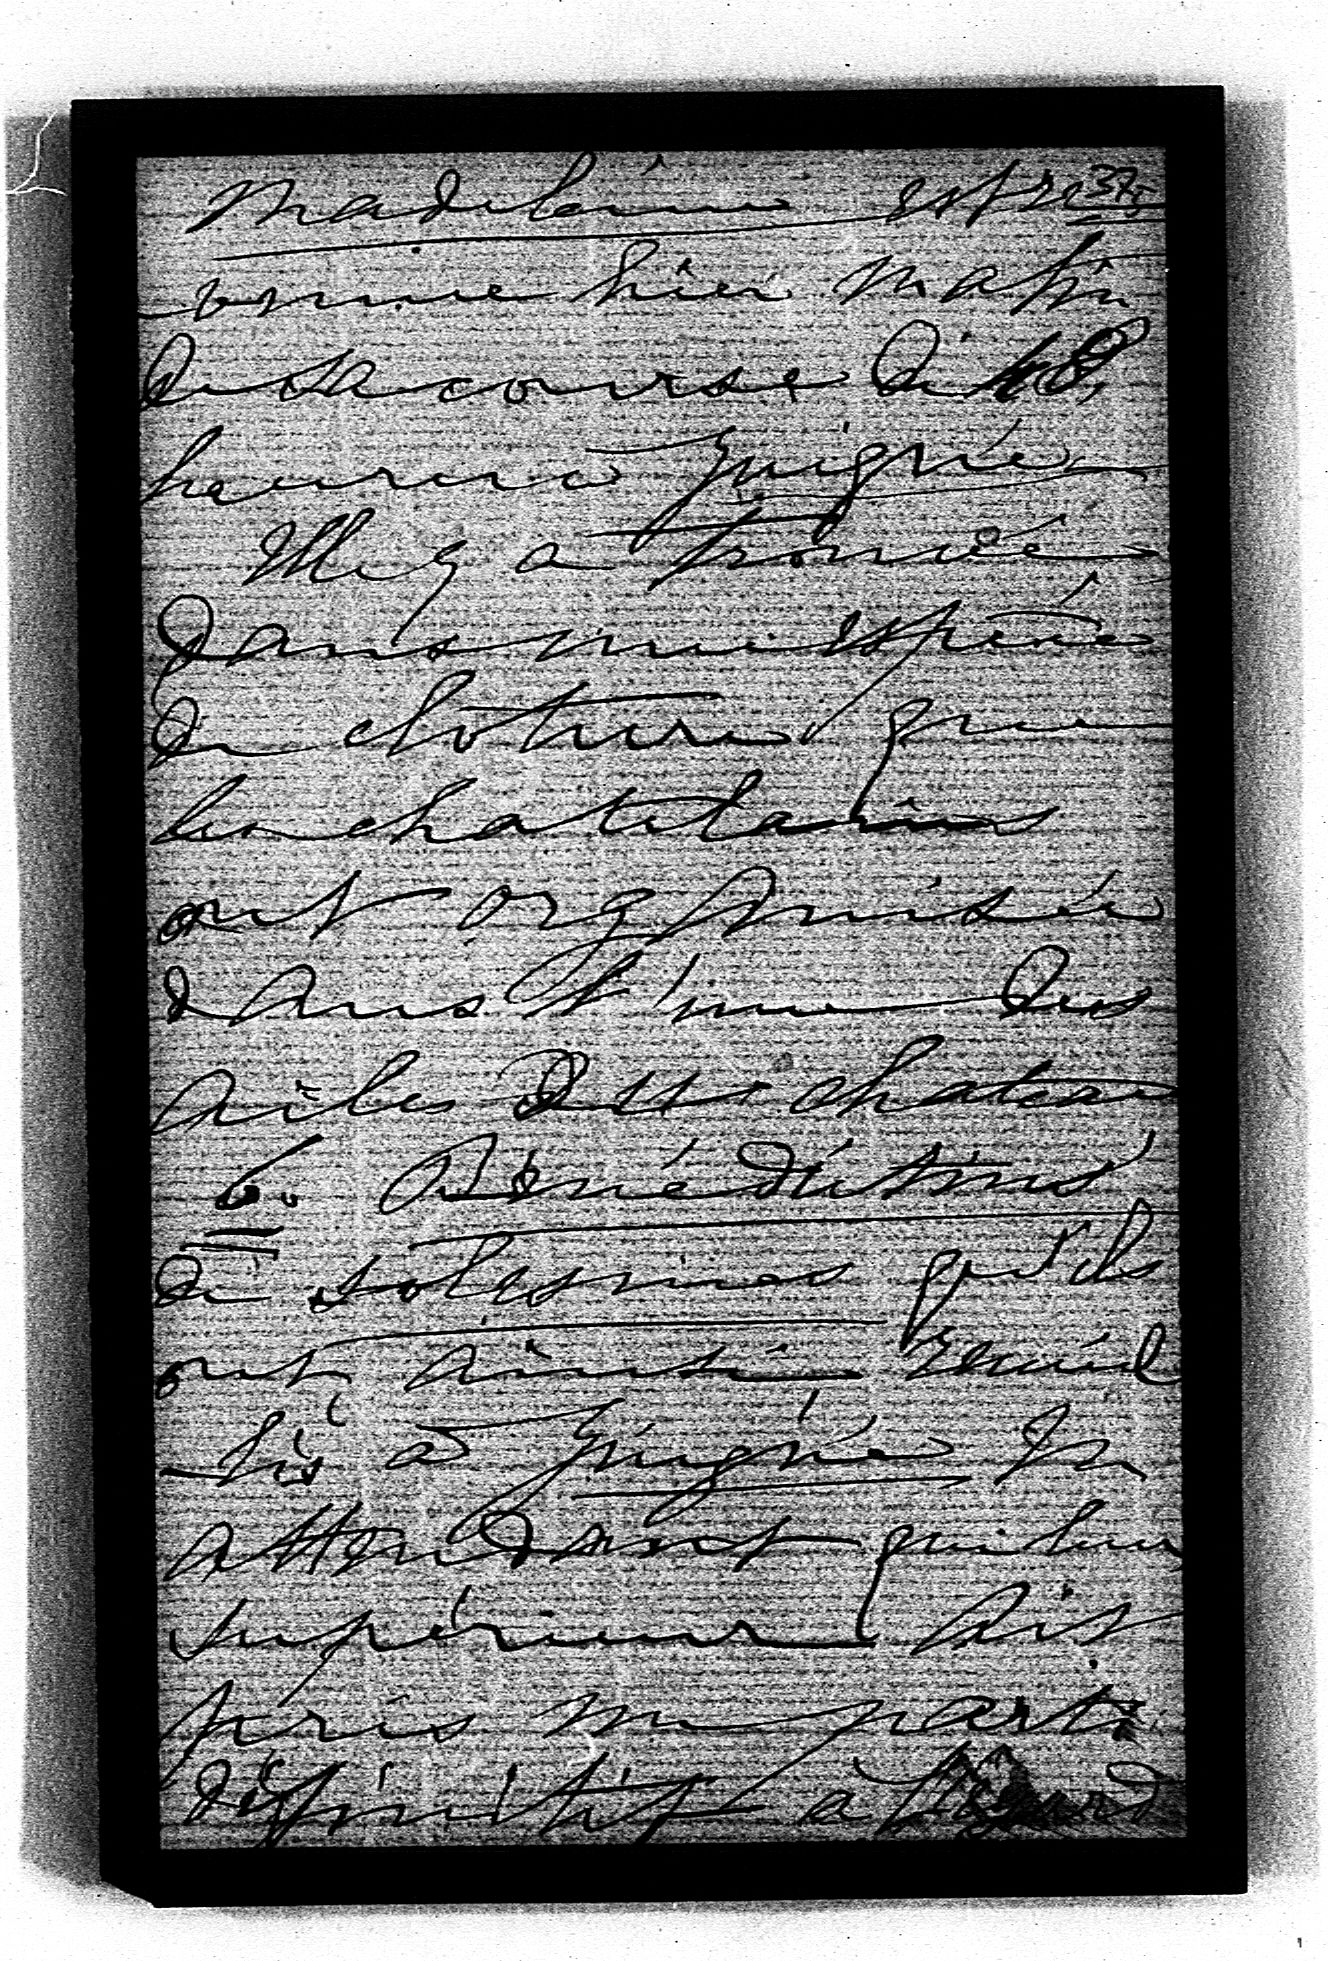 Madeleine est re 37.
venue hier matin
de sa course de 48
heures à Juigné
Elle y a trouvé
dans une espèce
de cloture que
les chatelains
ont organisée
dans l'une des
ailes du chateau
6. Bénédictins
de Solesmes qu'ils
ont ainsi recueil
-lis à Juigné en
attendant que leur
supérieur ait
pris un parti
définitif à l'égard